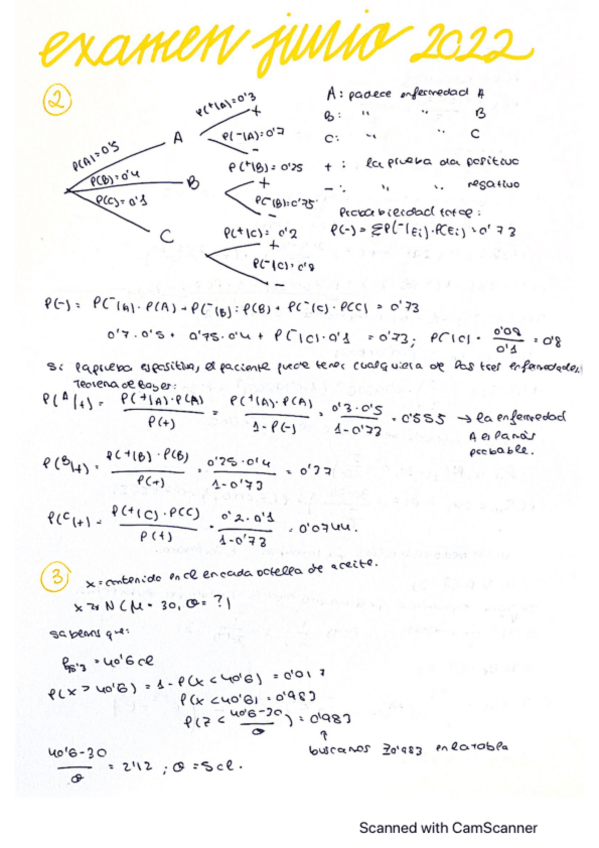 examen junio 2022
2
P(A)=0'5
P(B)=0'4
P(C)=0'1
A
B
C
P(+|A)=0'3
+
P(-|A)=0'7
-
P(+|B)=0'25
+
P(-|B)=0'75
-
P(+|C)=0'2
+
P(-|C)=0'8
-
A: padece enfermedad A
B: " " B
C: " " C
+: la prueba da positivo
-: " " negativo
Probabilidad total:
P(-) = ΣP(-|Ei)·P(Ei) = 0'73
P(-) = P(-|A)·P(A) + P(-|B)·P(B) + P(-|C)·P(C) = 0'73
0'7·0'5 + 0'75·0'4 + P(-|C)·0'1 = 0'73; P(-|C) = 0'08/0'1 = 0'8
Si la prueba es positiva, el paciente puede tener cualquiera de las tres enfermedades:
Teorema de Bayes:
P(A/+) = P(+|A)·P(A)/P(+) = P(+|A)·P(A)/1-P(-) = 0'3·0'5/1-0'73 = 0'555 → la enfermedad
A es la más
probable.
P(B/+) = P(+|B)·P(B)/P(+) = 0'25·0'4/1-0'73 = 0'37
P(C/+) = P(+|C)·P(C)/P(+) = 0'2·0'1/1-0'73 = 0'0744.
3
x = contenido en cl en cada botella de aceite.
x ≈ N(μ = 30, σ = ?)
Sabemos que:
= 40'6 cl
P(x > 40'6) = 1 - P(x < 40'6) = 0'017
P(x < 40'6) = 0'983
P(z < 40'6-30/σ) = 0'983
↑
buscamos z0'983 en la tabla
40'6-30/σ = 2'12; σ = 5 cl.
Scanned with CamScanner